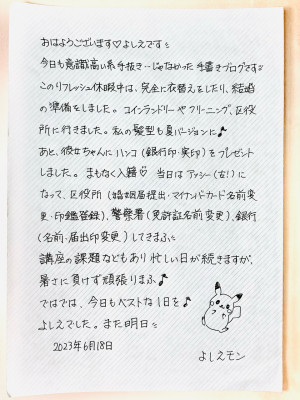 おはようございます♡よしえです♬
今日も意識高い系手抜き…じゃなかった手書きブログです♬
このリフレッシュ休暇中は、完全に衣替えをしたり、結婚
の準備をしました。コインランドリーやクリーニング、区役
所に行きました。私の髪型も夏バージョンに♪
あと、彼女ちゃんにハンコ(銀行印・実印)をプレゼント
しました。まもなく入籍♡ 当日はアッシー(古!)に
なって、区役所(婚姻届提出・マイナンバーカード名前変
更・印鑑登録)、警察署(免許証名前変更)、銀行
(名前・届出印変更)してきまふ
講座の課題などもあり忙しい日が続きますが、
暑さに負けず頑張りまふ♪
ではでは、今日もベストな1日を♪
よしえでした。また明日
2023年6月18日
よしえモン